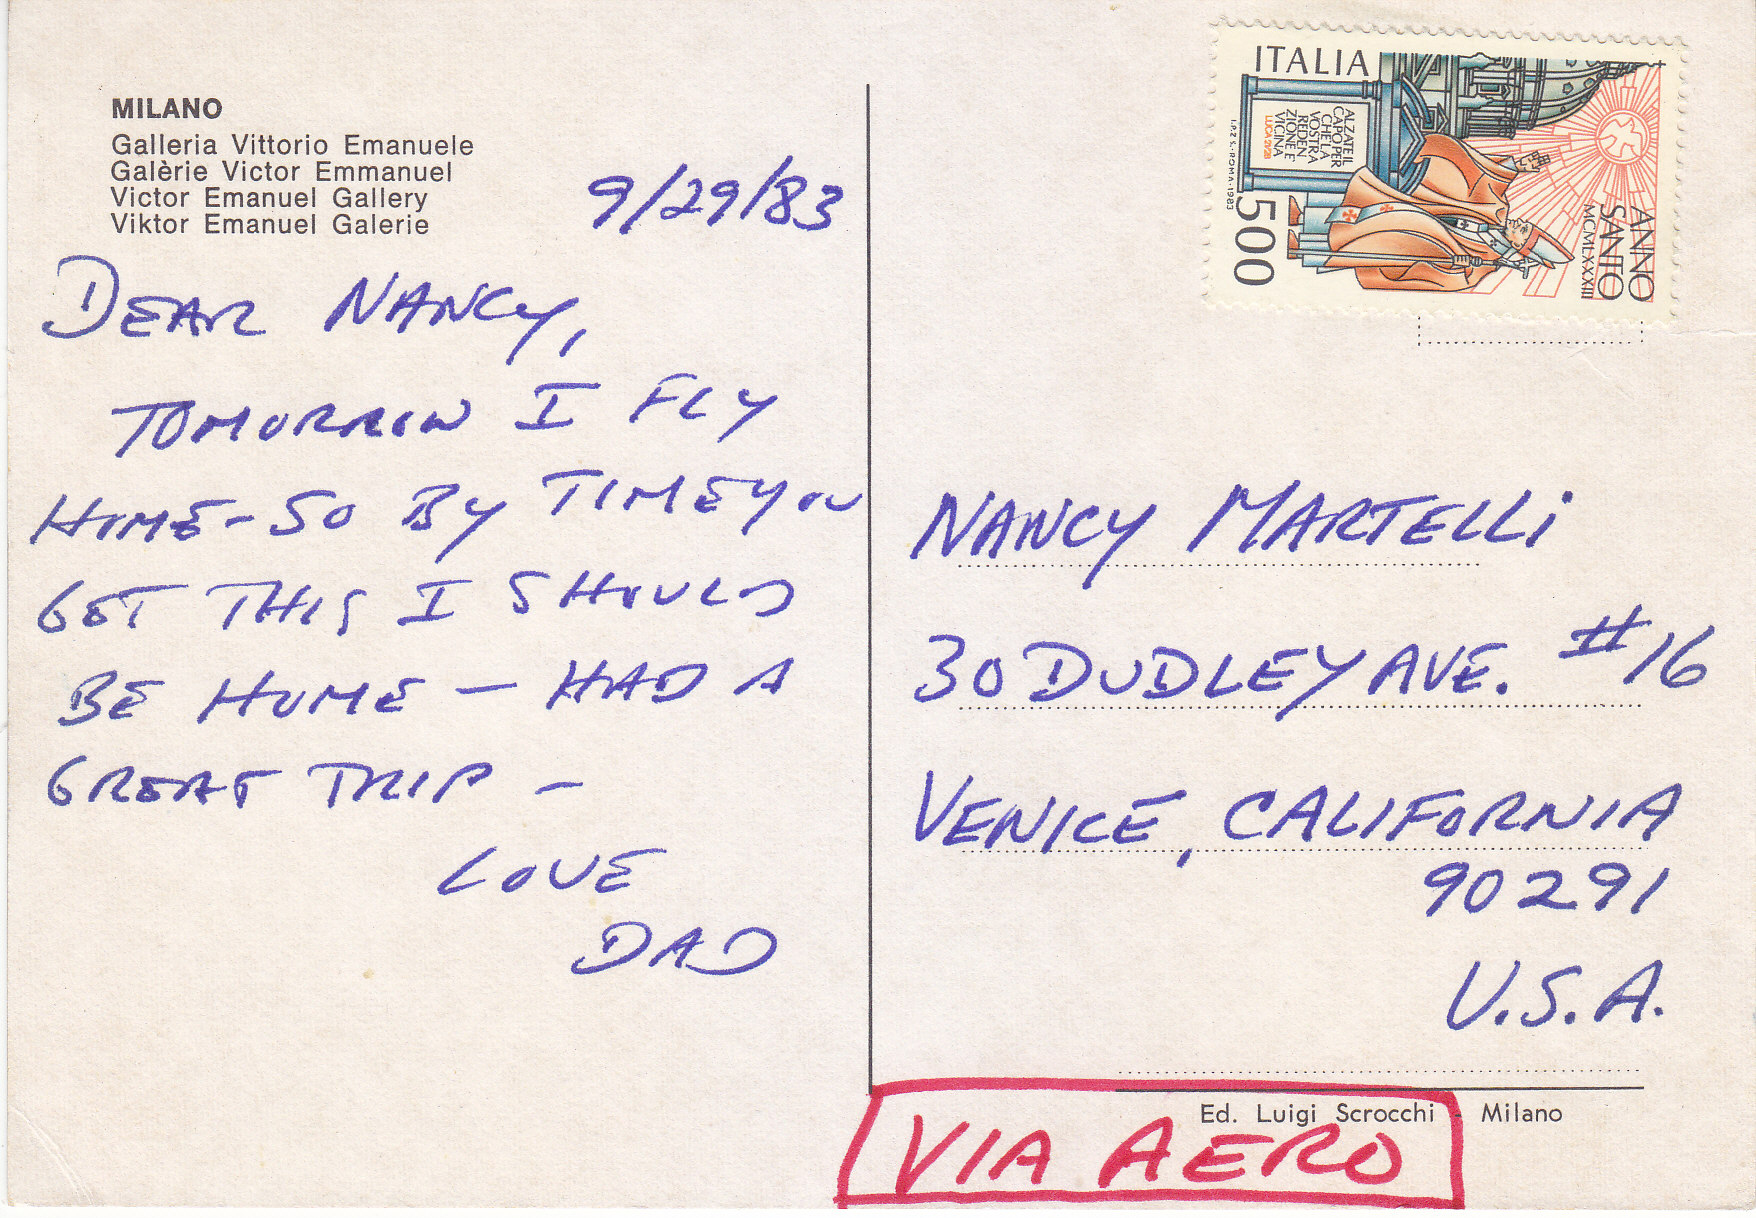 MILANO
Galleria Vittorio Emanuele
Galèrie Victor Emmanuel
Victor Emanuel Gallery
Viktor Emanuel Galerie
9/29/83
DEAR NANCY,
TOMORROW I FLY
HOME - SO BY TIME YOU
GET THIS I SHOULD
BE HOME - HAD A
GREAT TRIP -
LOVE
DAD
ITALIA
ALZATE IL
CAPO PER
CHE LA
VOSTRA
REDEN
ZIONE E
VICINA
LUCA 21/28
I.P.Z.S. - ROMA - 1983
500
ANNO
SANTO
MCMLXXXIII
NANCY MARTELLI
30 DUDLEY AVE. #16
VENICE, CALIFORNIA
90291
U.S.A.
Ed. Luigi Scrocchi - Milano
VIA AERO